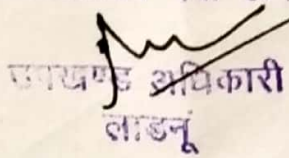 उपखण्ड अधिकारी
लाडनूं